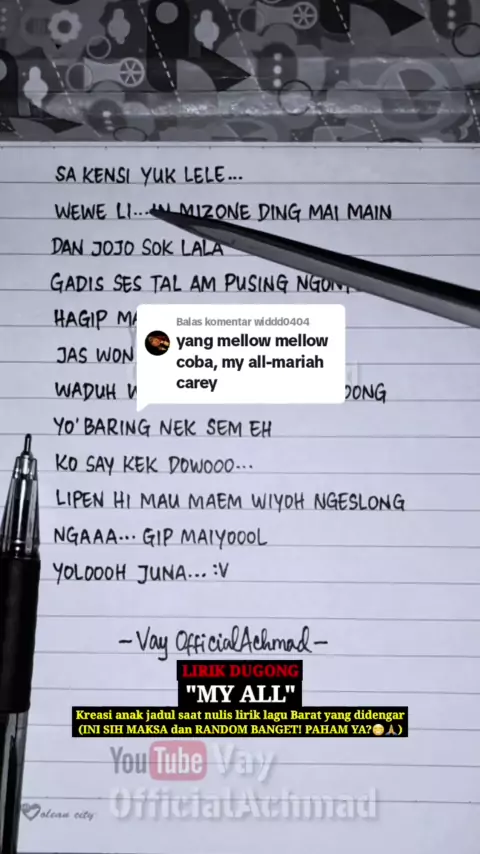 SA KENSI YUK LELE...
WEWE LI... MIZONE DING MAI MAIN
DAN JOJO SOK LALA
GADIS SES TAL AM PUSING
HAGIP
Balas komentar widdd0404
yang mellow mellow
coba, my all-mariah
carey
JAS WON
WADUH
YO' BARING NEK SEM EH
KO SAY KEK DOWOOO...
LIPEN HI MAU MAEM WIYOH NGESLONG
NGAAA... GIP MAIYOOOL
YOLOOOH JUNA... :V
-Vay OfficialAchmad-
LIRIK DUGONG
"MY ALL"
Kreasi anak jadul saat nulis lirik lagu Barat yang didengar
(INI SIH MAKSA dan RANDOM BANGET! PAHAM YA?😁🙏)
YouTube Vay
OfficialAchmad
olean city